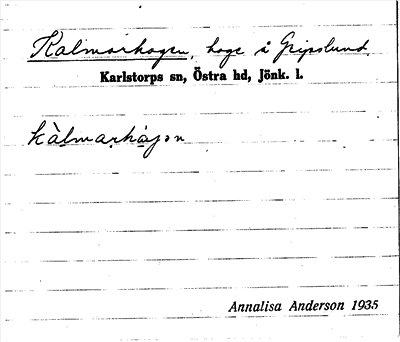 Kalmarhagen, hage å Gripslund.
Karlstorps sn, Östra hd, Jönk. l.
kàlmarhàgən
Annalisa Anderson 1935